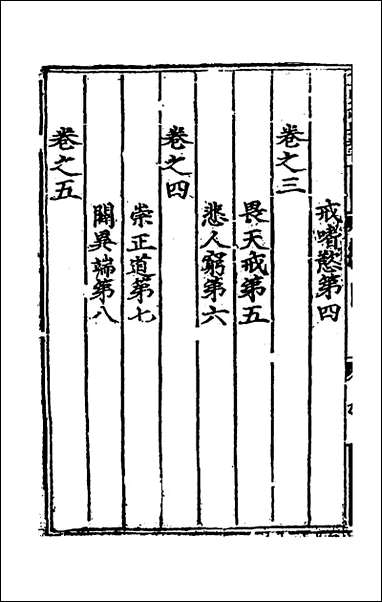 戒嗜慾第四
卷之三
畏天戒第五
悲人窮第六
卷之四
崇正道第七
闢異端第八
卷之五